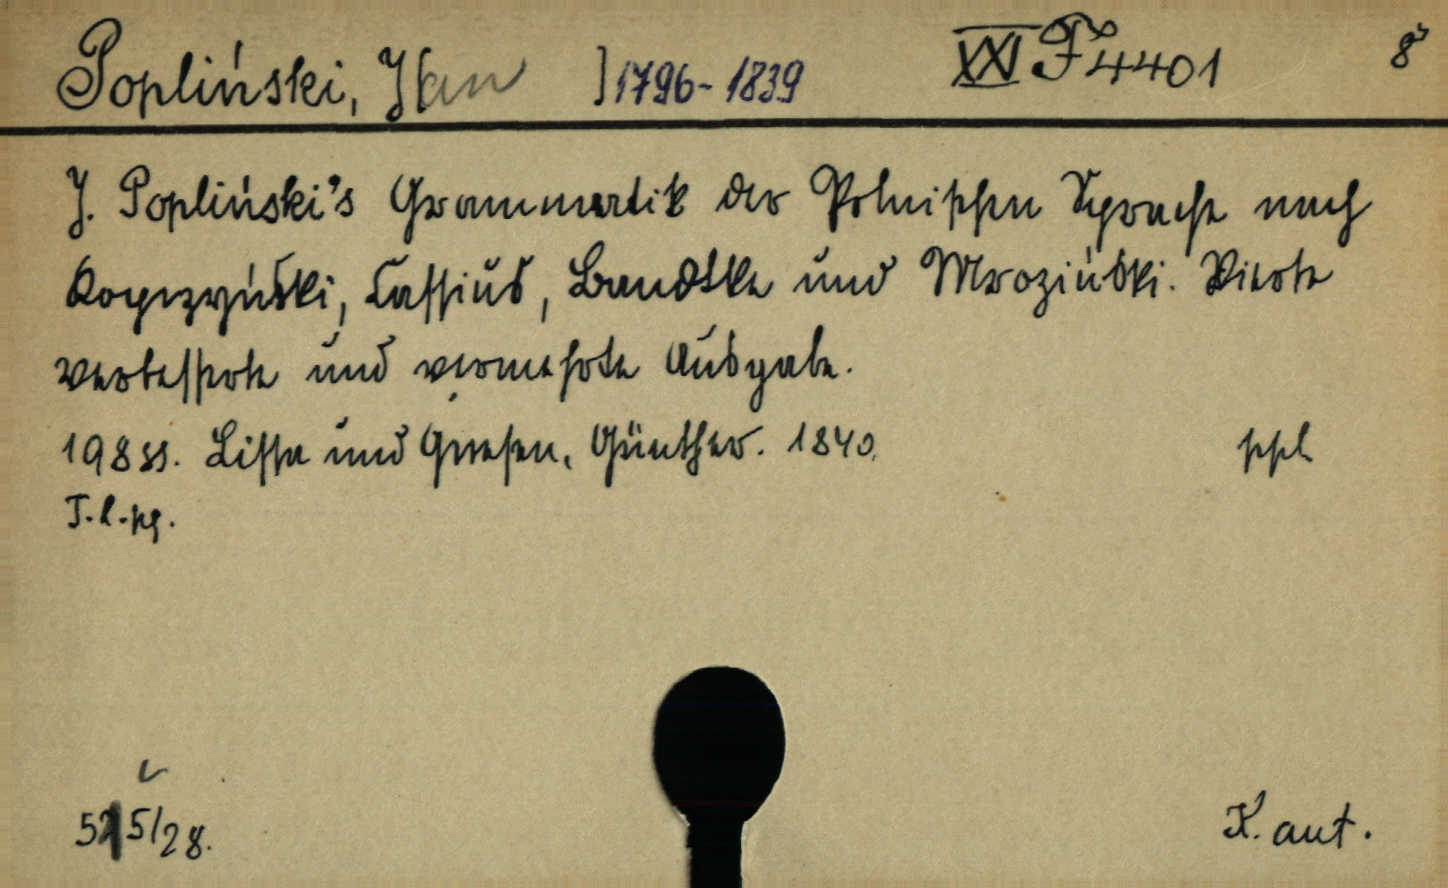 Popliński, J[an ] 1796-1839 XXI F 4401 8°
J. Popliński's Grammatik der Polnischen Sprache nach
Kopczyński, Cassius, Bandtke und Mroziński. Vierte
verbesserte und vermehrte Ausgabe.
198 SS. Lissa und Gnesen, Günther. 1840.
5215/28.
K. aut.